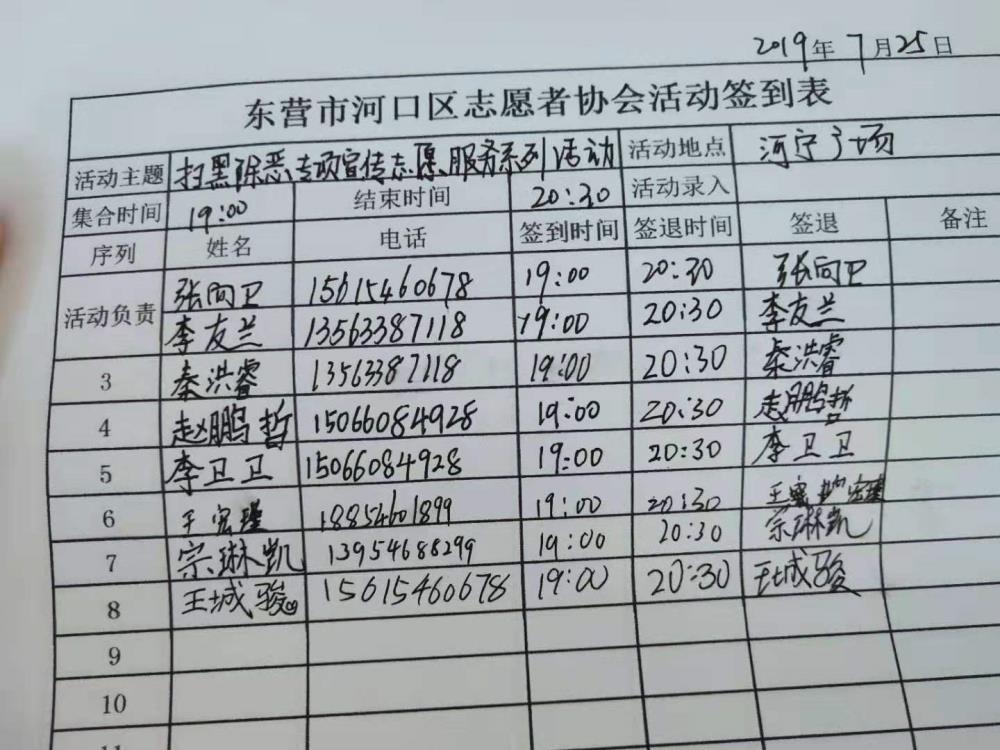 2019年7月25日
东营市河口区志愿者协会活动签到表
活动主题 扫黑除恶专项宣传志愿服务系列活动 活动地点 河宁广场
集合时间 19:00 结束时间 20:30 活动录入
序列 姓名 电话 签到时间 签退时间 签退 备注
活动负责 张向卫 15615460678 19:00 20:30 张向卫
李友兰 13563387118 19:00 20:30 李友兰
3 秦洪睿 13563387118 19:00 20:30 秦洪睿
4 赵鹏哲 15066084928 19:00 20:30 赵鹏哲
5 李卫卫 15066084928 19:00 20:30 李卫卫
6 王宏瑾 18854601899 19:00 20:30 王宏瑾
7 宗琳凯 13954688299 19:00 20:30 宗琳凯
8 王城骏 15615460678 19:00 20:30 王城骏
9
10
11